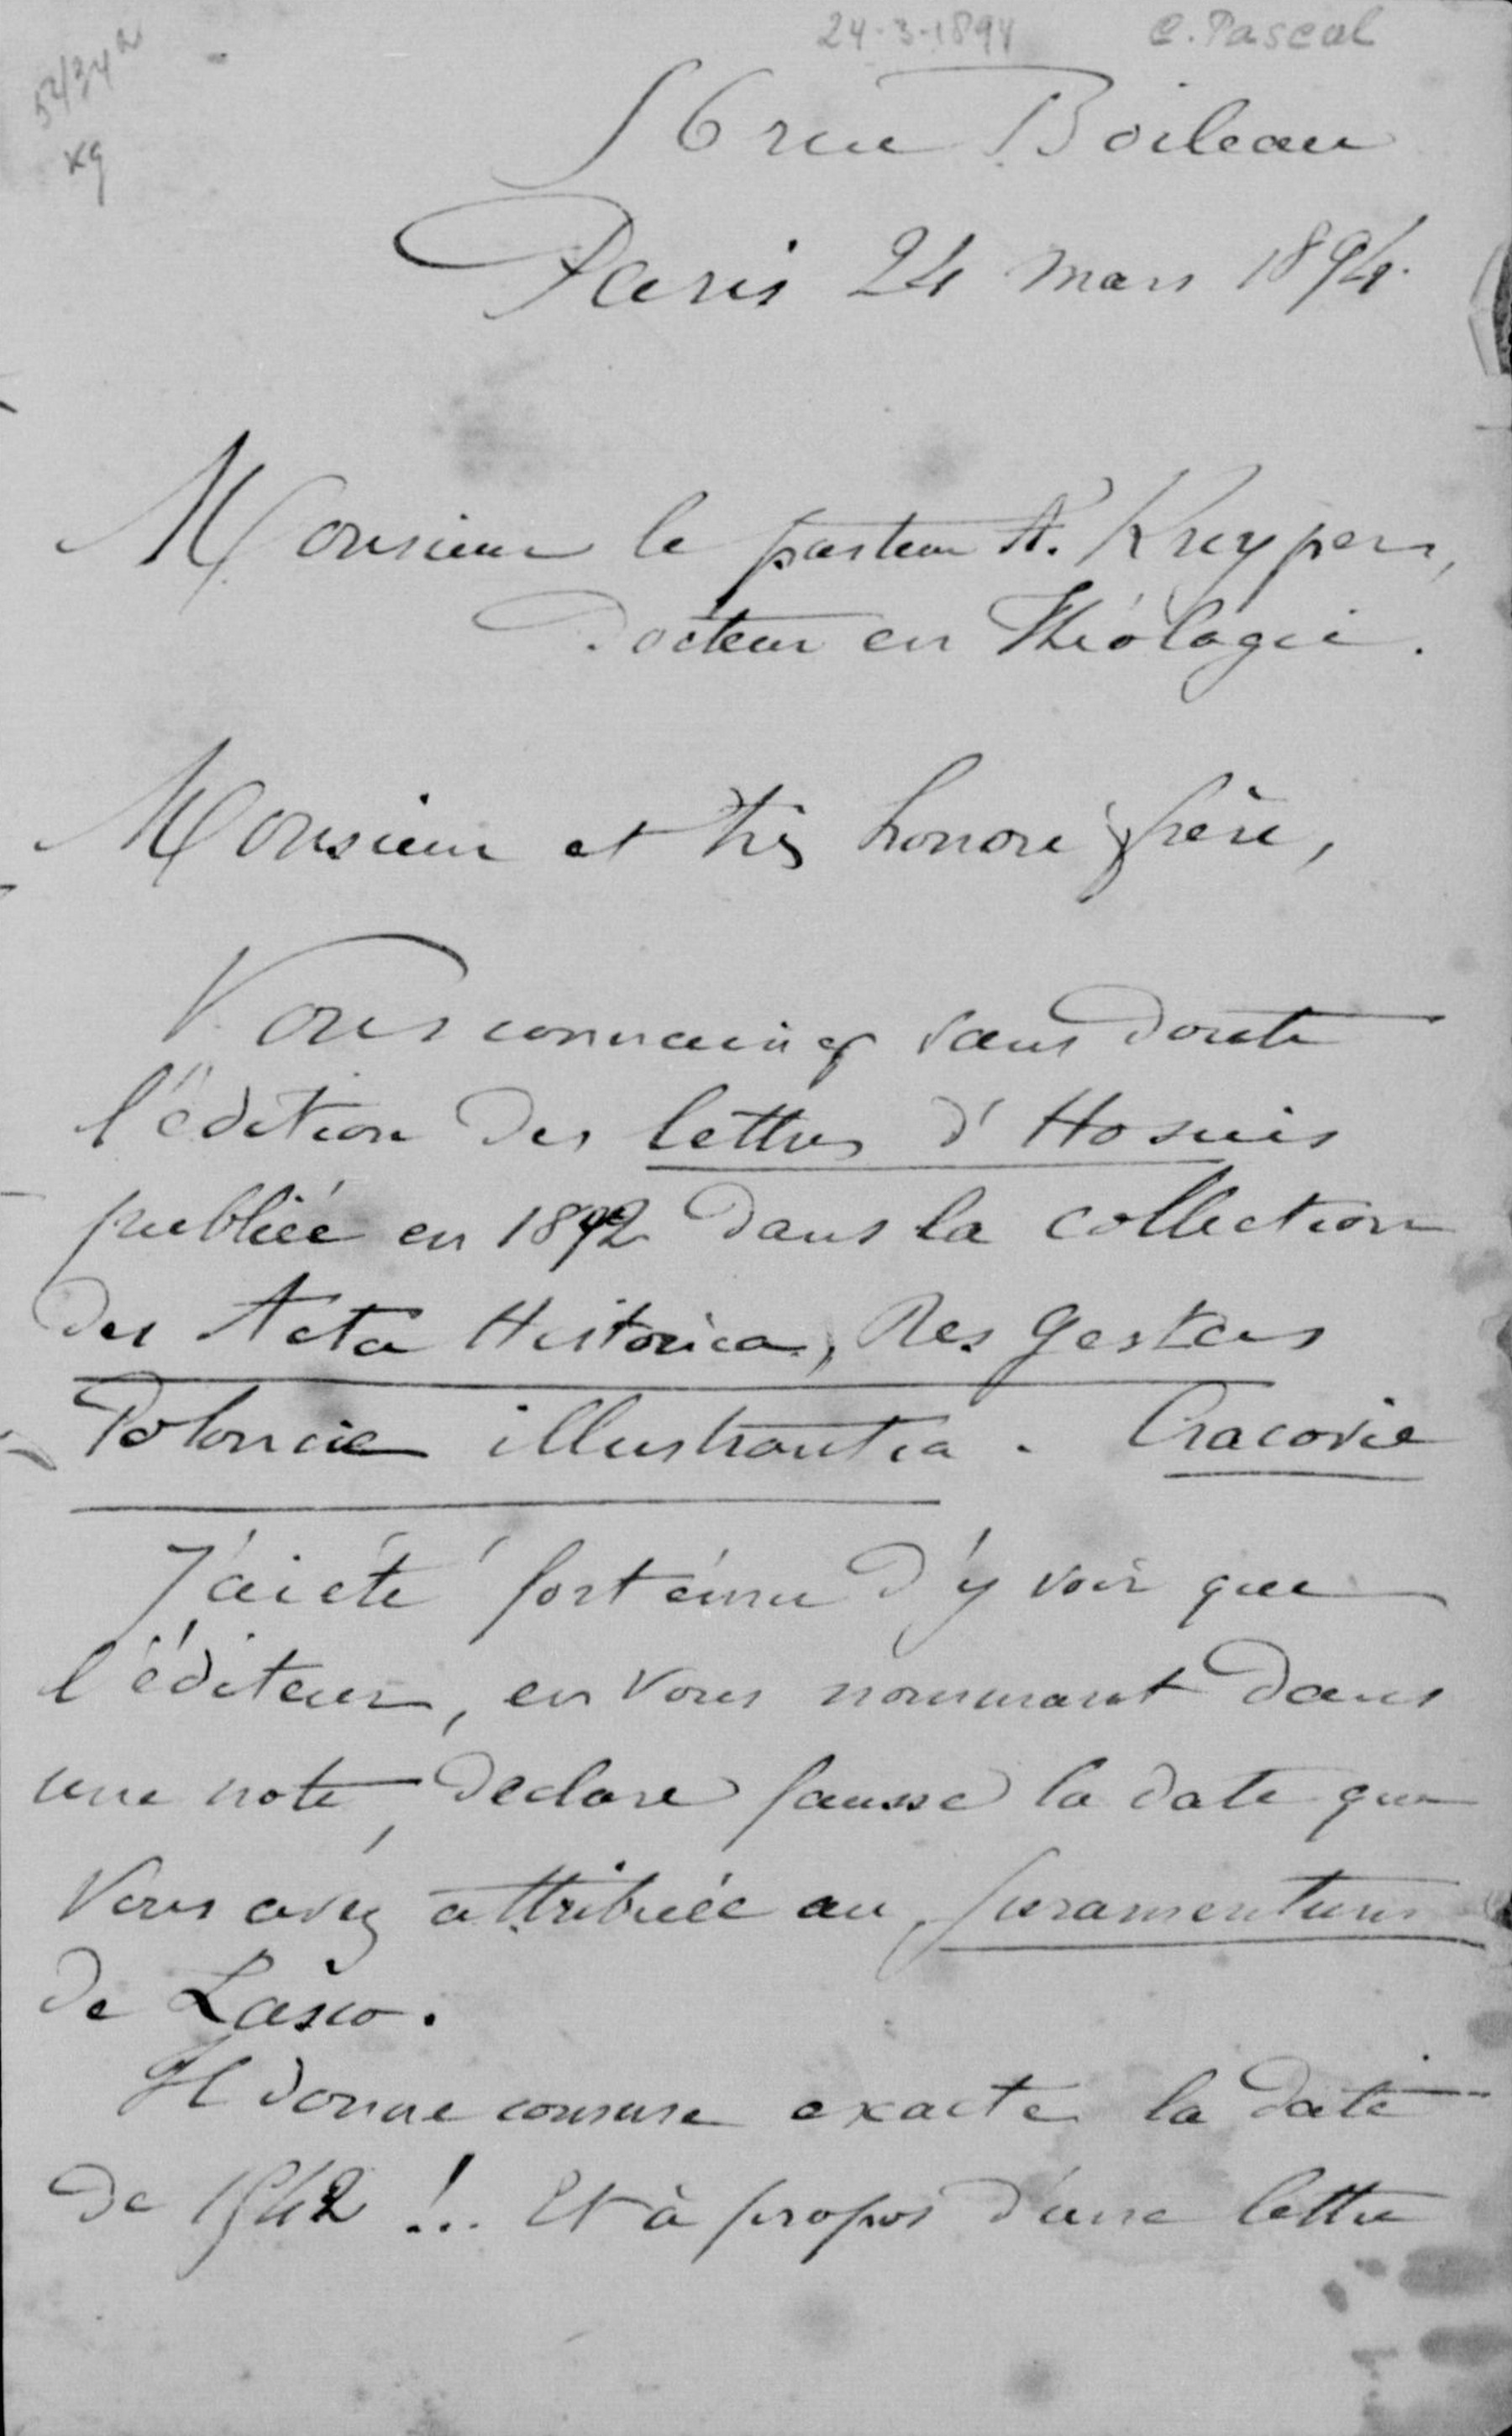 24-3-1894 C. Pascal
5434a
Kg
56 rue Boileau
Paris 24 mars 1894.
Monsieur le pasteur A. Kuypers,
Docteur en Théologie.
Monsieur et très honoré frère,
Vous connaissez sans doute
l'édition des lettres d'Hosius
publiée en 1892 dans la collection
des Acta Historica, Res gestas
Poloniae illustrantia. Cracovie
J'ai été fort ému d'y voir que
l'éditeur, en vous nommant dans
une note, déclare fausse la date que
vous avez attribuée au juramentum
de Lasco.
Il donne comme exacte la date
de 1542 !.. Et à propos d'une lettre